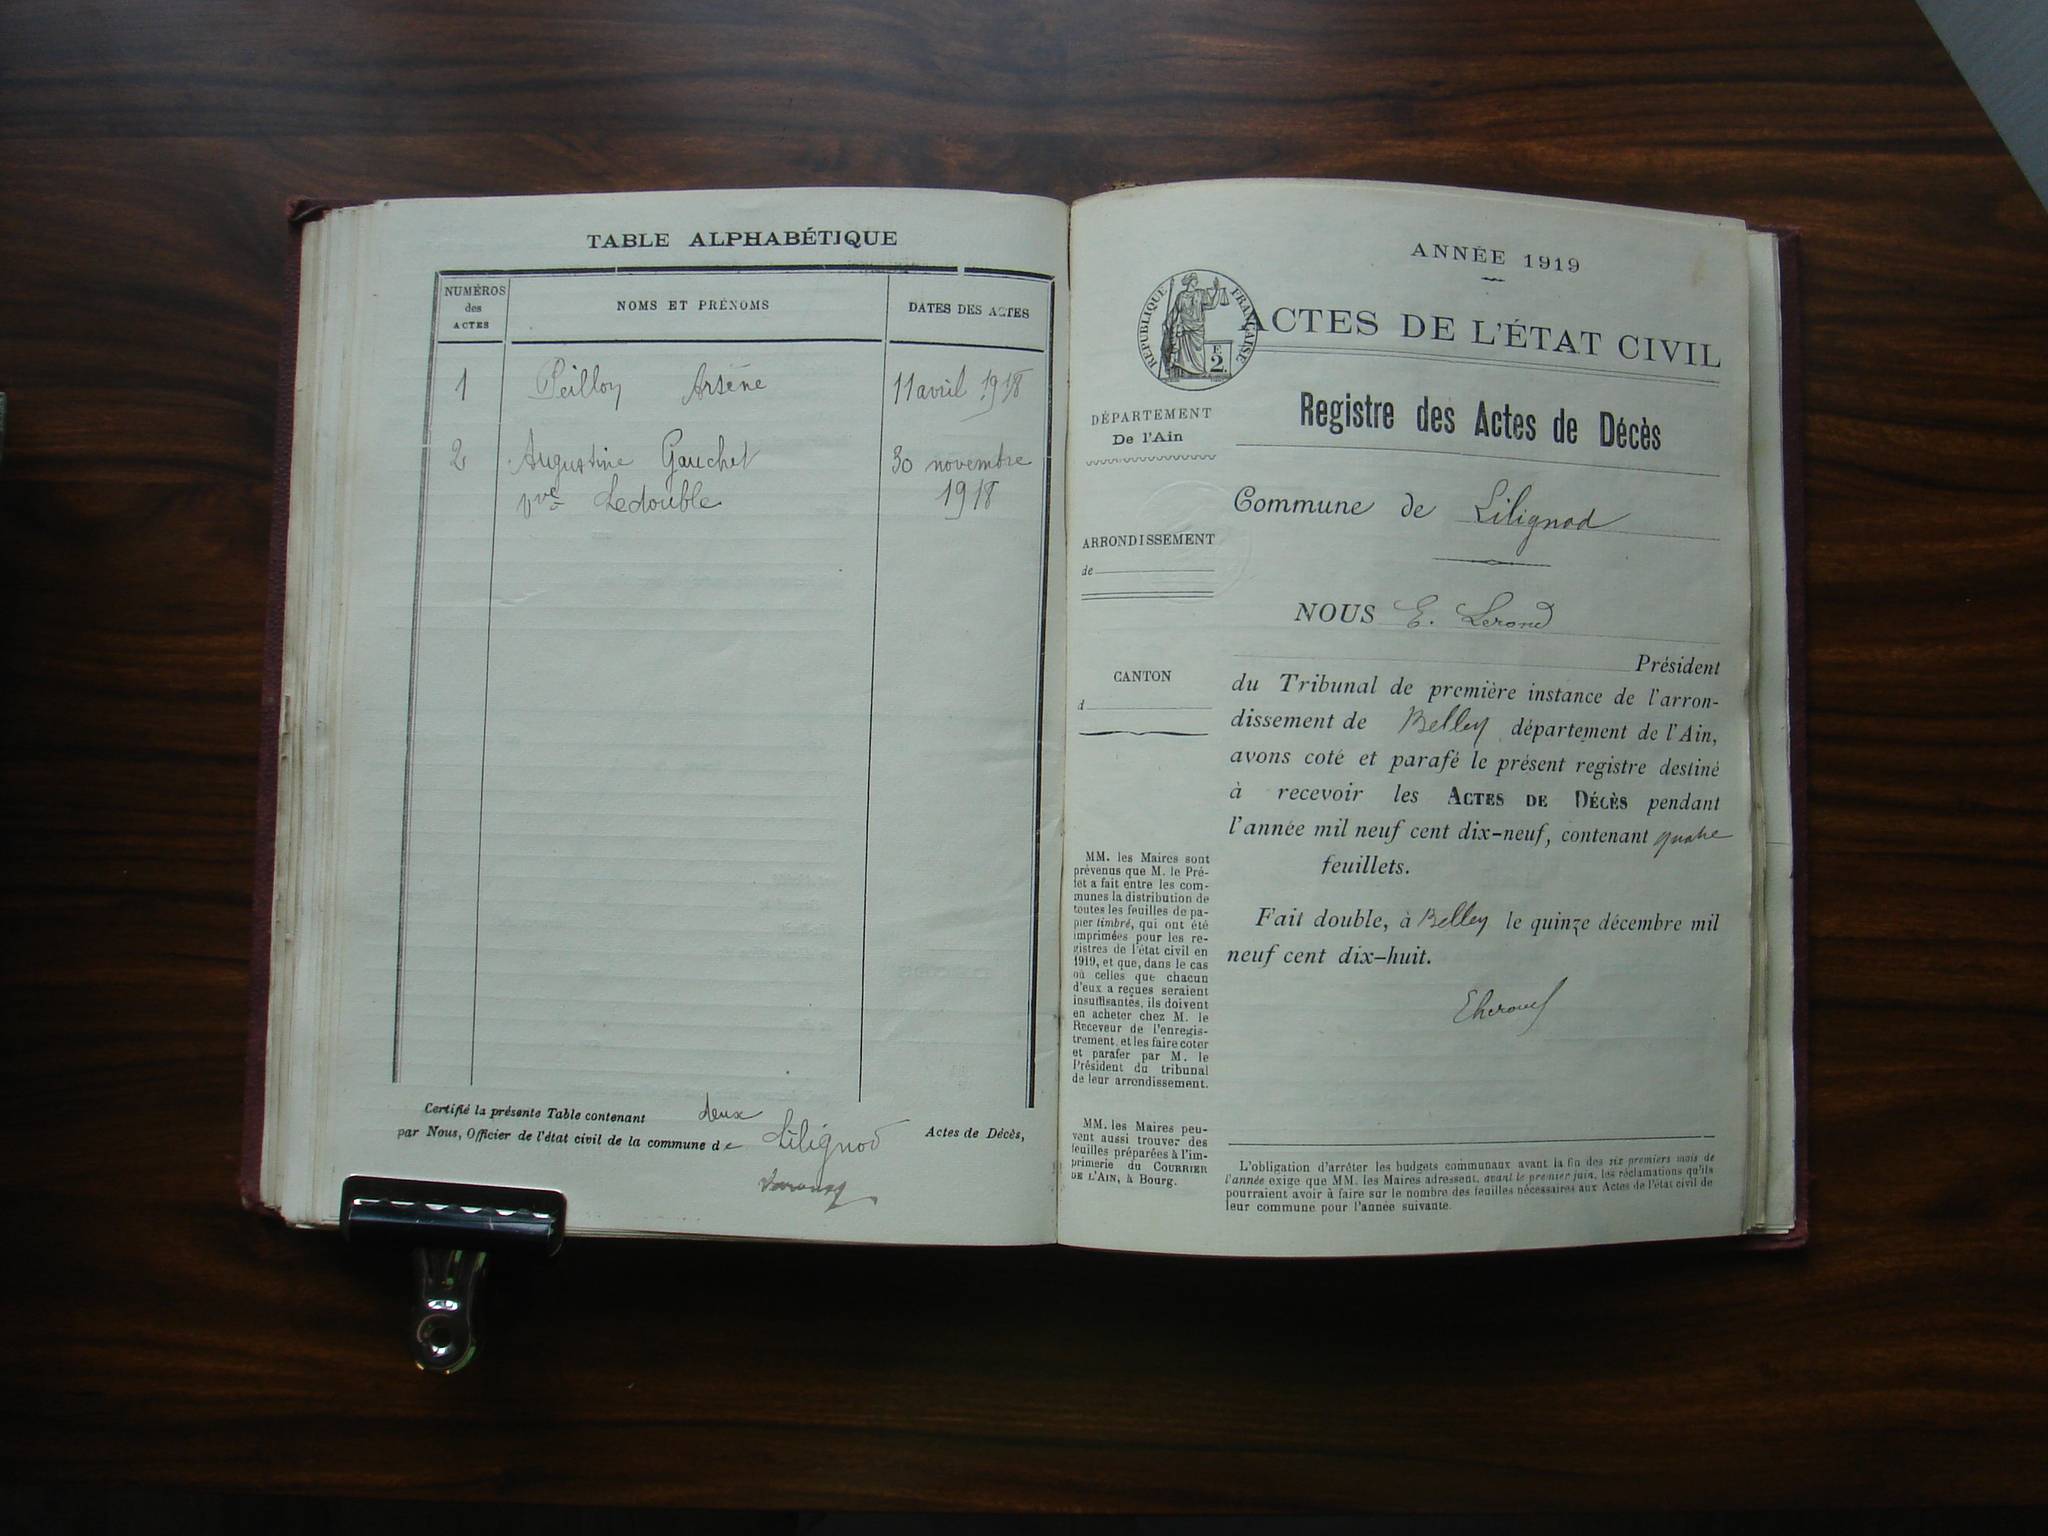 TABLE ALPHABÉTIQUE
NUMÉROS
des
ACTES
NOMS ET PRÉNOMS
DATES DES ACTES
1 Peilloy Arsène 11 avril 1918
2 Augustine Gauchet 30 novembre
Vve Ledouble 1918
Certifié la présente Table contenant deux
Actes de Décès,
par Nous, Officier de l'état civil de la commune de Lilignod
ANNÉE 1919
RÉPUBLIQUE FRANÇAISE
E
2.
ACTES DE L'ÉTAT CIVIL
Registre des Actes de Décès
DÉPARTEMENT
De l'Ain
ARRONDISSEMENT
de
CANTON
d
MM. les Maires sont
prévenus que M. le Pré-
fet a fait entre les com-
munes la distribution de
toutes les feuilles de pa-
pier timbré, qui ont été
imprimées pour les re-
gistres de l'état civil en
1919, et que, dans le cas
où celles que chacun
d'eux a reçues seraient
insuffisantes, ils doivent
en acheter chez M. le
Receveur de l'enregis-
trement, et les faire coter
et parafer par M. le
Président du tribunal
de leur arrondissement.
MM. les Maires peu-
vent aussi trouver des
feuilles préparées à l'im-
primerie du COURRIER
DE L'AIN, à Bourg.
Commune de Lilignod
NOUS E. Lerond
Président
du Tribunal de première instance de l'arron-
dissement de Belley département de l'Ain,
avons coté et parafé le présent registre destiné
à recevoir les ACTES DE DÉCÈS pendant
l'année mil neuf cent dix-neuf, contenant quatre
feuillets.
Fait double, à Belley le quinze décembre mil
neuf cent dix-huit.
L'obligation d'arrêter les budgets communaux avant la fin des six premiers mois de
l'année exige que MM. les Maires adressent, avant le premier juin, les réclamations qu'ils
pourraient avoir à faire sur le nombre des feuilles nécessaires aux Actes de l'état civil de
leur commune pour l'année suivante.